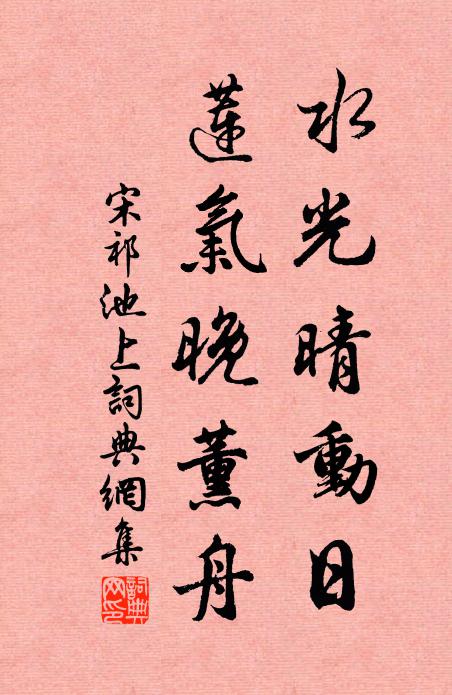 水光晴動日
蓮氣晚薰舟
宋祁池上詞典網集
詞典网印